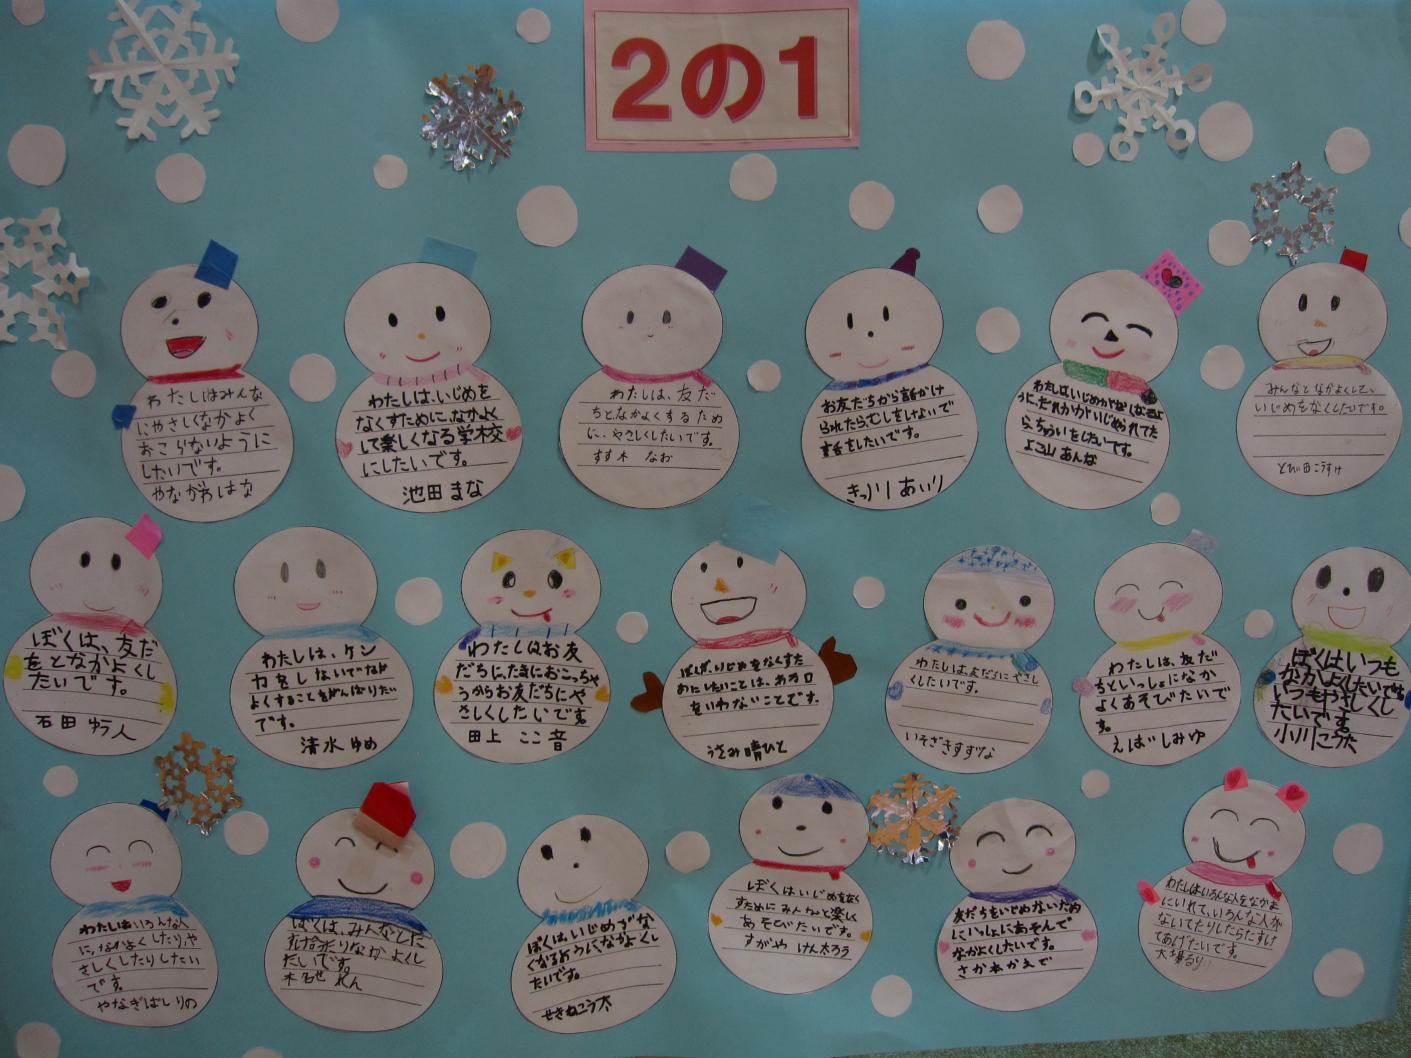 2の1
わたしはみんな
にやさしくなかよく
おこらないように
したいです。
やながわはな
わたしは、いじめを
なくすために、なかよく
して楽しくなる学校
にしたいです。
池田まな
わたしは、友だ
ちとなかよくするため
に、やさしくしたいです。
すず木 なお
お友だちから話かけ
られたらむしをしないで
をしたいです。
きっ川 あいり
わたしはいじめがなくなるよ
うに、だれかがいじめられてた
ら、ちゅういをしたいです。
よこ山 あんな
みんなとなかよくして、
いじめをなくしたいです。
とび田こうすけ
ぼくは、友だ
ちとなかよくし
たいです。
石田
わたしは、ケン
カをしないでなか
よくすることをがんばりたい
です。
清水 ゆめ
わたしはお友
だちに、たまにおこっちゃ
うからお友だちにや
さしくしたいです。
田上 ここ音
ぼくがいじめをなくすた
めにしたいことは、あっ口
をいわないことです。
うさみ 晴ひと
わたしは友だちにやさし
くしたいです。
いそざきすずな
わたしは、友だ
ちといっしょになか
よくあそびたいで
す。
えばし みゆ
ぼくはいつも
なかよくしたいです。
いつもやさしくし
たいです。
小川こうた
わたしはいろんな人
に、なかよくしたり、や
さしくしたりしたい
です。
やなぎばしりの
ぼくは、みんなとした
すけ合いなかよくし
たいです。
木名せ れん
ぼくは、いじめがな
くなるようになかよくし
たいです。
せきねこう太
ぼくはいじめをなく
すためにみんなと楽しく
あそびたいです。
すがや けん太ろう
友だちをいじめないため
にいっしょにあそんで
なかよくしたいです。
さかお かえで
わたしはいろんな人をなかま
にいれて、いろんな人が
ないてたりしたらたすけ
てあげたいです。
大場るり